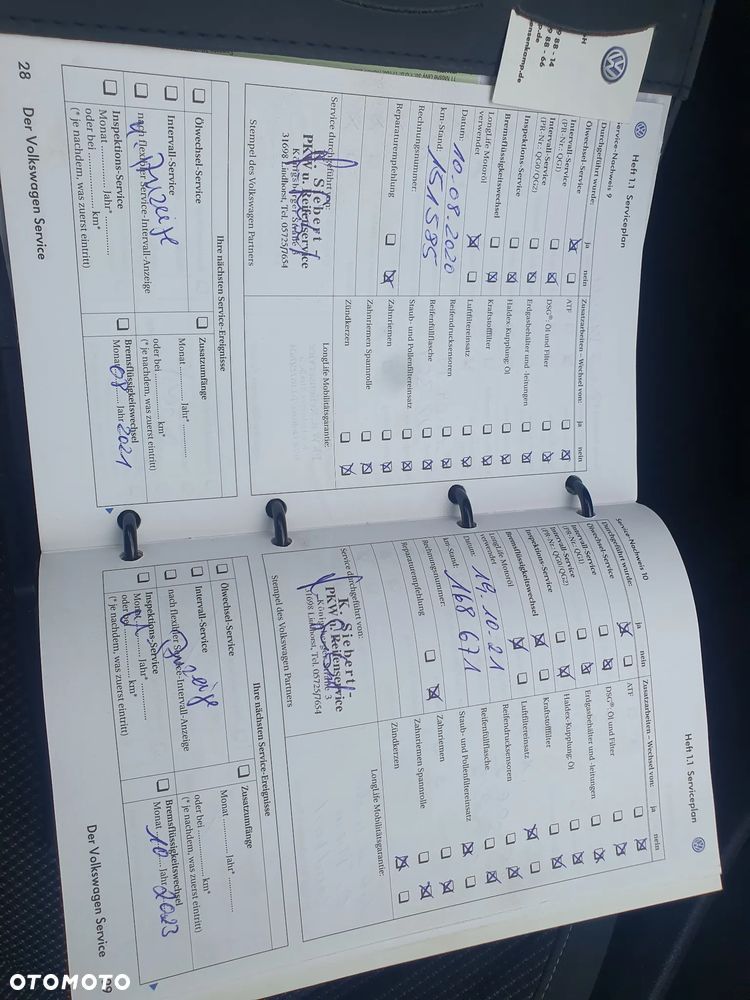 H
9 88 - 14
9 88 - 66
p.de
nsenkamp.de
Heft 1.1 Serviceplan
Service-Nachweis 9
Durchgeführt wurde:
ja
nein
Ölwechsel-Service
Intervall-Service
(PR-Nr.: QG1)
Intervall-Service
(PR-Nr.: QG0/QG2)
Inspektions-Service
Bremsflüssigkeitswechsel
LongLife Motoröl
verwendet
Datum: 10.08.2020
km-Stand: 151595
Rechnungsnummer:
Reparaturempfehlung
Service durchgeführt von:
K. Siebert
PKW u. Reifenservice
Königsberger Straße 3
31698 Lindhorst, Tel. 05725/7654
Stempel des Volkswagen Partners
Zusatzarbeiten – Wechsel von:
ja
nein
ATF
DSG®: Öl und Filter
Erdgasbehälter und -leitungen
Haldex-Kupplung: Öl
Kraftstofffilter
Luftfiltereinsatz
Reifendrucksensoren
Reifenfüllflasche
Staub- und Pollenfiltereinsatz
Zahnriemen
Zahnriemen Spannrolle
Zündkerzen
LongLife Mobilitätsgarantie:
Ihre nächsten Service-Ereignisse
Ölwechsel-Service
Intervall-Service
nach flexibler Service-Intervall-Anzeige
Anzeige
Inspektions-Service
Monat ............ Jahr* ............
oder bei ............ km*
(* je nachdem, was zuerst eintritt)
Zusatzumfänge
Monat ............ Jahr* ............
oder bei ............ km*
(* je nachdem, was zuerst eintritt)
Bremsflüssigkeitswechsel
Monat 08 Jahr 2021
28 Der Volkswagen Service
Heft 1.1 Serviceplan
Service-Nachweis 10
Durchgeführt wurde:
ja
nein
Ölwechsel-Service
Intervall-Service
(PR-Nr.: QG1)
Intervall-Service
(PR-Nr.: QG0/QG2)
Inspektions-Service
Bremsflüssigkeitswechsel
LongLife Motoröl
verwendet
Datum: 19.10.21
km-Stand: 168671
Rechnungsnummer:
Reparaturempfehlung
Service durchgeführt von:
K. Siebert
PKW u. Reifenservice
Königsberger Straße 3
31698 Lindhorst, Tel. 05725/7654
Stempel des Volkswagen Partners
Zusatzarbeiten – Wechsel von:
ja
nein
ATF
DSG®: Öl und Filter
Erdgasbehälter und -leitungen
Haldex-Kupplung: Öl
Kraftstofffilter
Luftfiltereinsatz
Reifendrucksensoren
Reifenfüllflasche
Staub- und Pollenfiltereinsatz
Zahnriemen
Zahnriemen Spannrolle
Zündkerzen
LongLife Mobilitätsgarantie:
Ihre nächsten Service-Ereignisse
Ölwechsel-Service
Intervall-Service
nach flexibler Service-Intervall-Anzeige
Anzeige
Inspektions-Service
Monat ............ Jahr* ............
oder bei ............ km*
(* je nachdem, was zuerst eintritt)
Zusatzumfänge
Monat ............ Jahr* ............
oder bei ............ km*
(* je nachdem, was zuerst eintritt)
Bremsflüssigkeitswechsel
Monat 10 Jahr 2023
Der Volkswagen Service 29
OTOMOTO